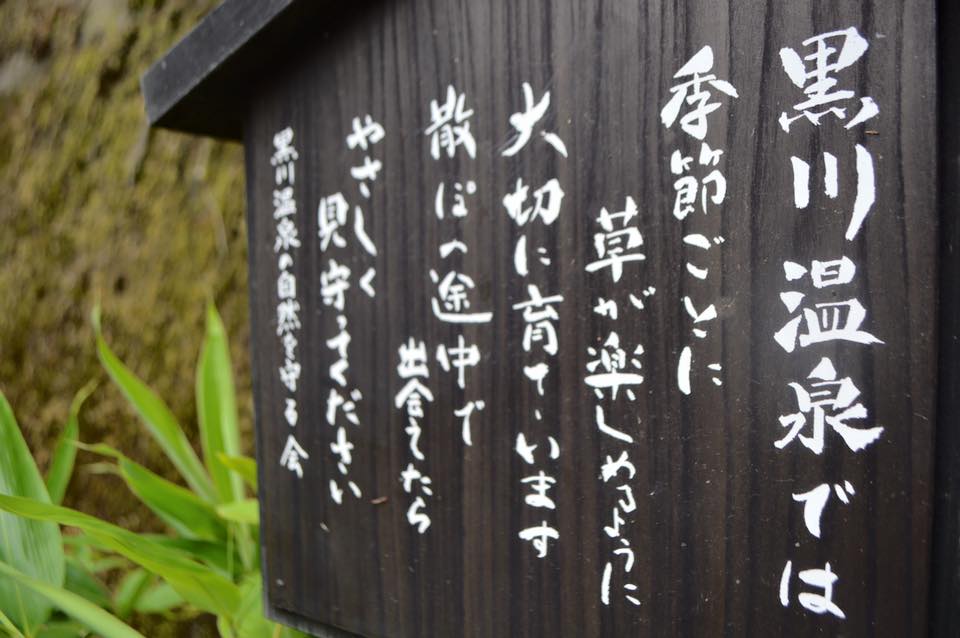 黒川温泉では
季節ごとに
草が楽しめるように
大切に育ています
散ぽの途中で
出会えたら
やさしく
見守ってください
黒川温泉の自然を守る会